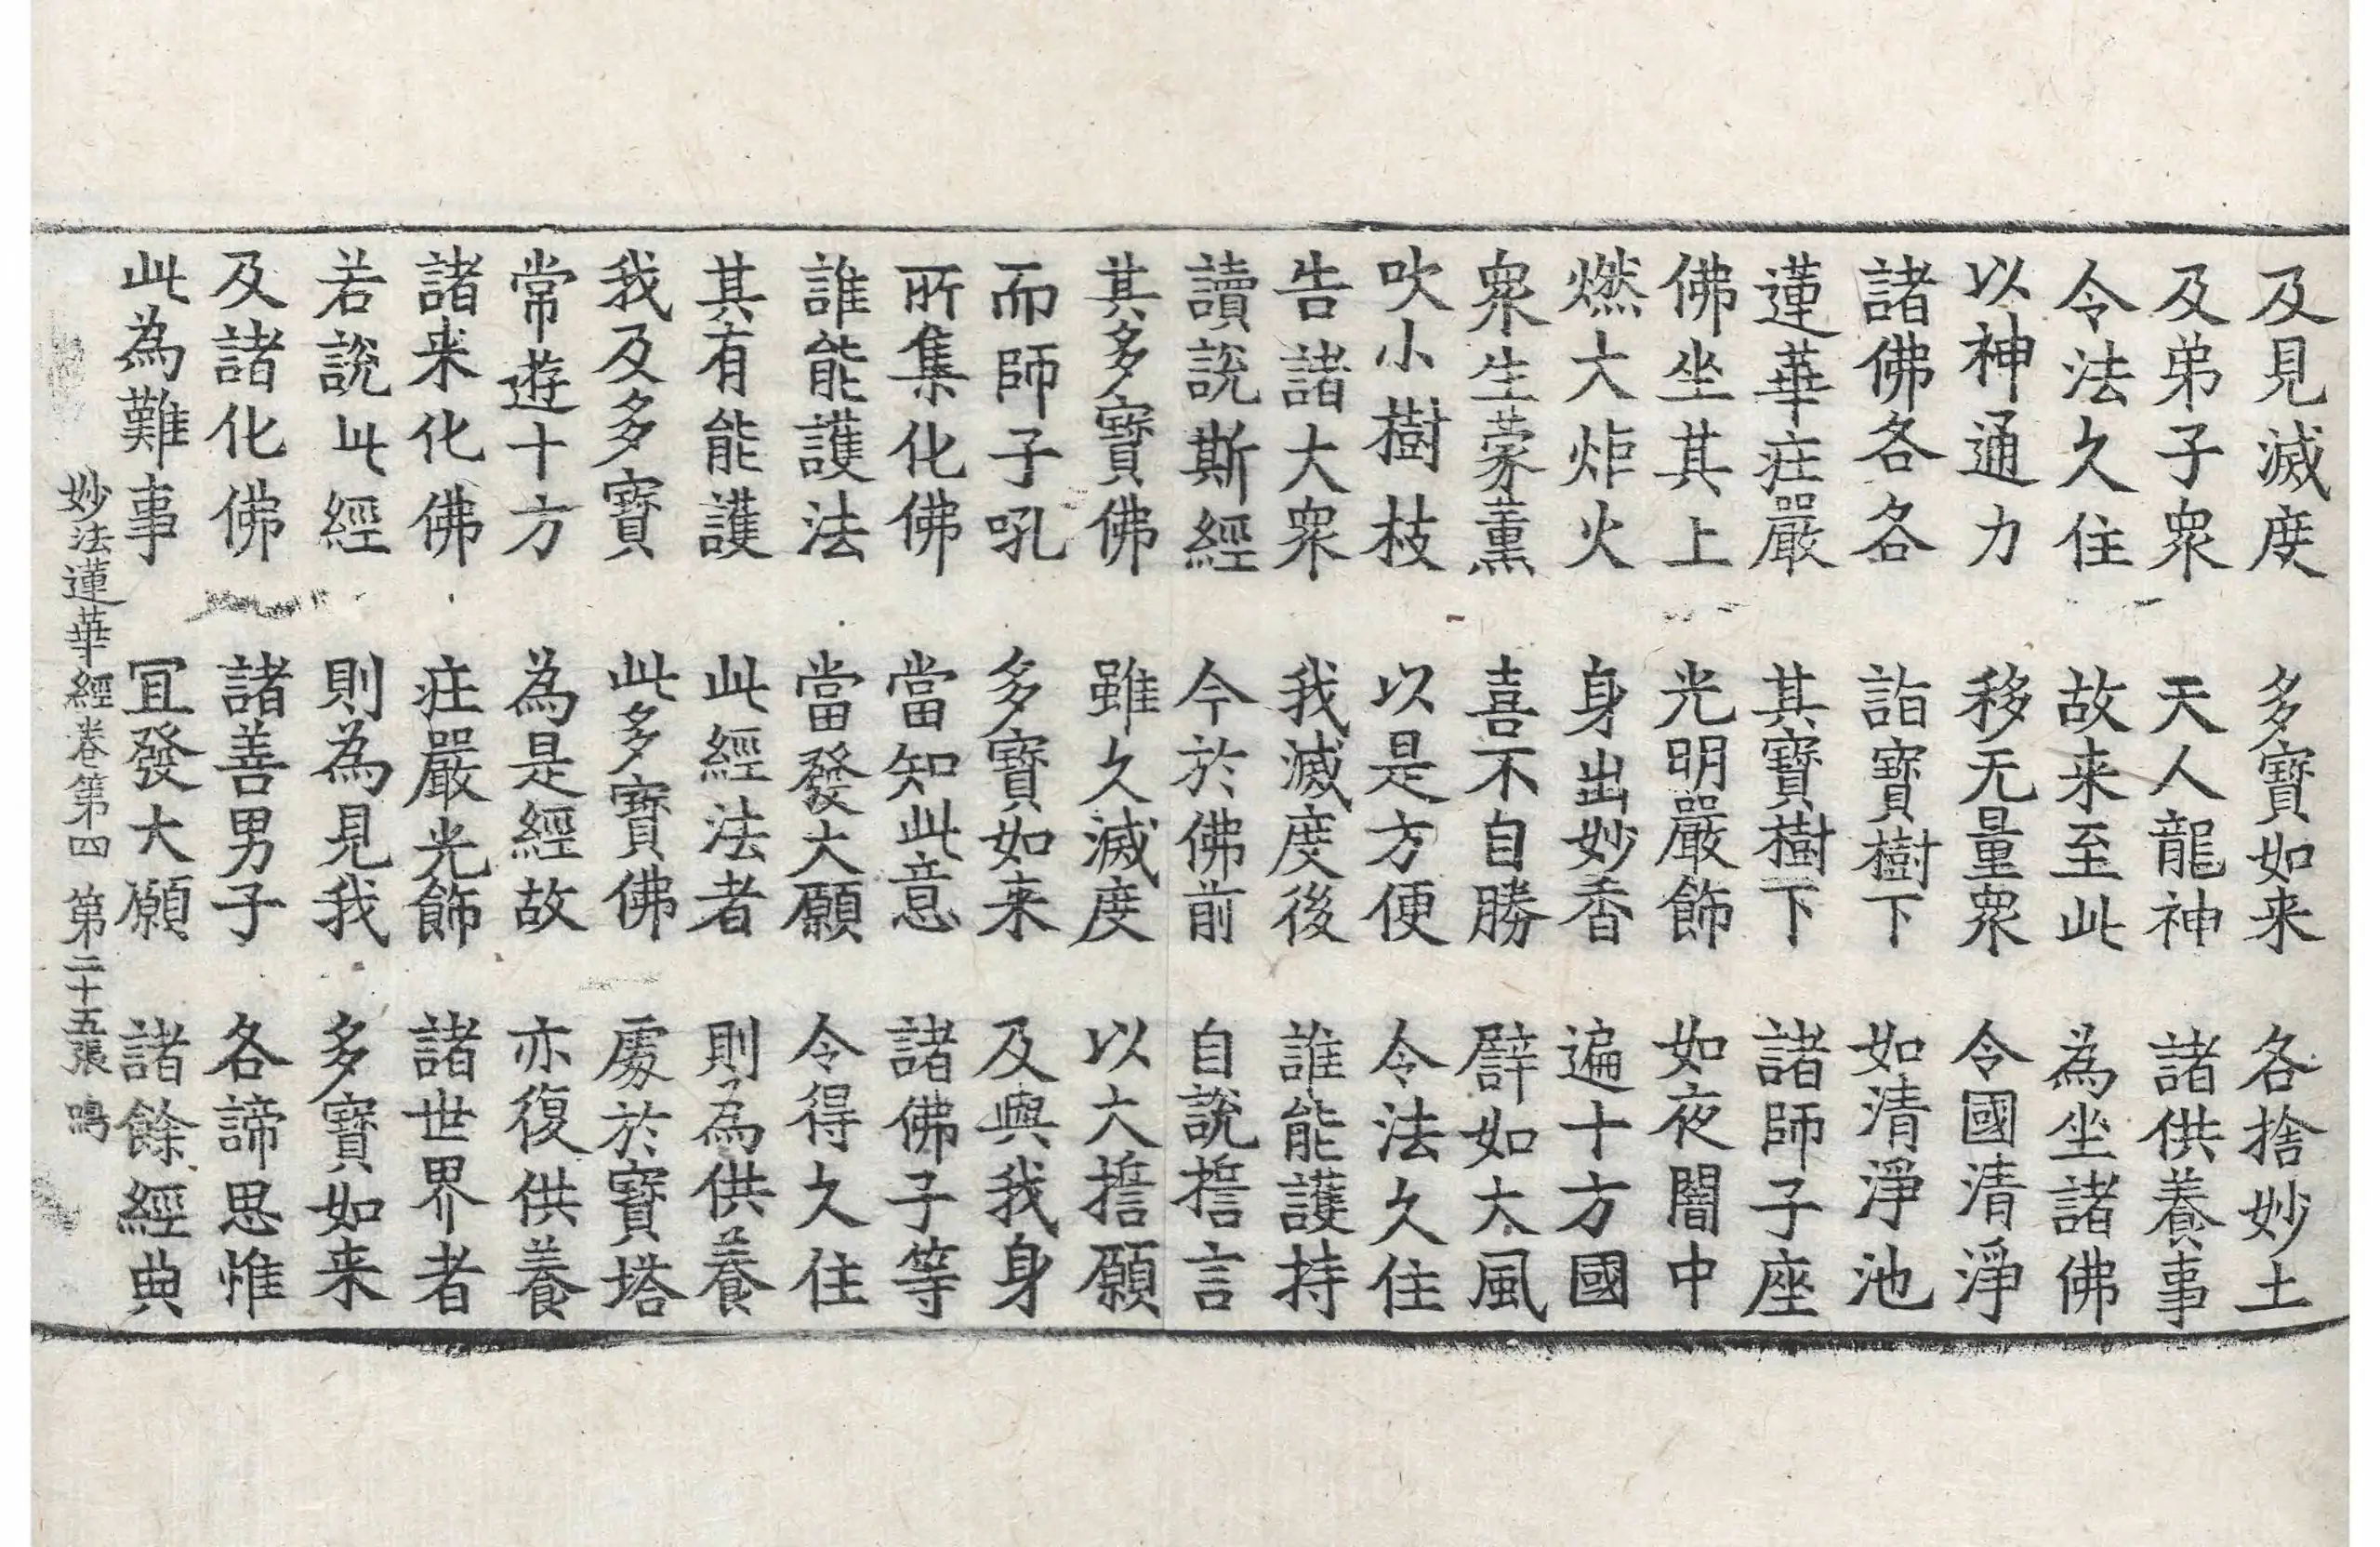 及見滅度　多寶如来　各捨妙土
及弟子衆　天人龍神　諸供養事
令法久住　故来至此　為坐諸佛
以神通力　移无量衆　令國清淨
諸佛各各　詣寶樹下　如清淨池
蓮華庄嚴　其寶樹下　諸師子座
佛坐其上　光明嚴飾　如夜闇中
燃大炬火　身出妙香　遍十方國
衆生蒙薰　喜不自勝　譬如大風
吹小樹枝　以是方便　令法久住
告諸大衆　我滅度後　誰能護持
讀說斯經　今於佛前　自說誓言
其多寶佛　雖久滅度　以大誓願
而師子吼　多寶如来　及與我身
所集化佛　當知此意　諸佛子等
誰能護法　當發大願　令得久住
其有能護　此經法者　則為供養
我及多寶　此多寶佛　處於寶塔
常遊十方　為是經故　亦復供養
諸来化佛　庄嚴光飾　諸世界者
若說此經　則為見我　多寶如来
及諸化佛　諸善男子　各諦思惟
此為難事　冝發大願　諸餘經典
妙法蓮華經卷第四　第二十五張　鳴